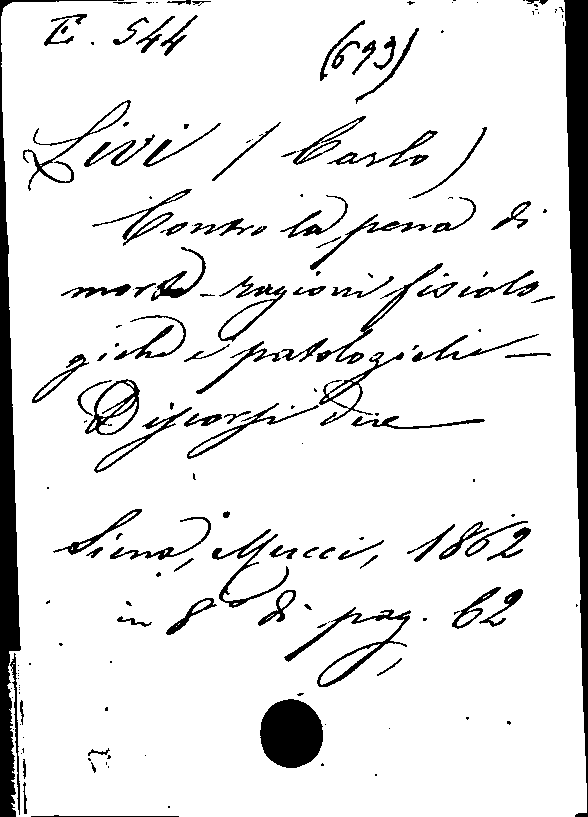 E. 544
(693)
Livi (Carlo)
Contro la pena di
morte - ragioni fisiolo-
giche e patologiche -
Discorsi due
Siena, Mucci, 1862
in 8° di pag. 62